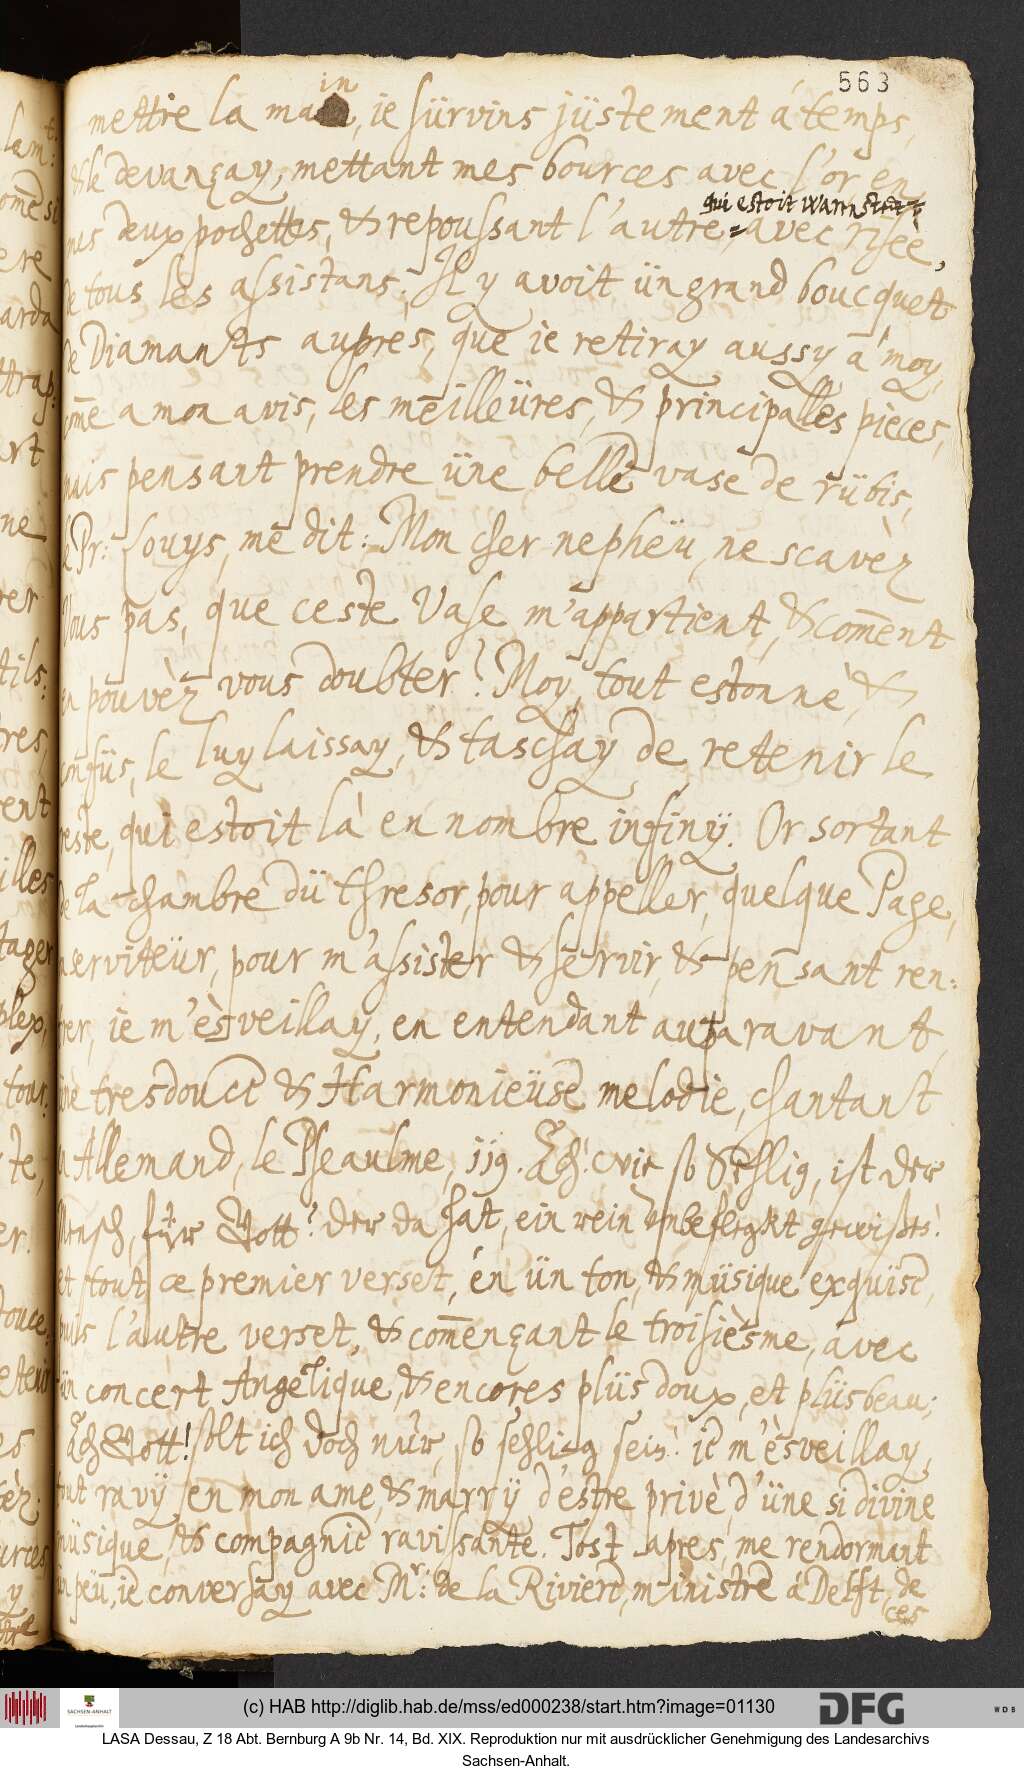 563
mettre la main, ie sürvins jüstement á temps,
& le devançay, mettant mes bources avec l'or en
qui estoit Warnstet
mes deux pochettes, & repoussant l'autre = avec risee,
de tous les assistans; Il y avoit ün grand boucquet
de Diamants aupres, que ie retiray aussy a' moy,
com̃e a mon avis, les meilleüres, & principalles pieces,
mais pensant prendre üne belle vase de rübis,
le Pr: Louys, me dit: Mon cher nepheü, ne scavèz
Vous pas, que ceste Vase m'appartient, & com̃ent
en pouvèz vous doubter? Moy, tout estonnè, &
confüs, le luy laissay, & taschay de retenir le
reste, qui estoit là en nombre infinÿ. Or sortant
de la chambre dü thresor, pour appeller, quelque Page,
serviteür, pour m'assister & servir, & pensant ren:
trer, ie m'èsveillay, en entendant auparavant,
üne tresdouce & Harmonieüse melodie, chantant
en Allemand, le Pseaulme, 119. Ach! wie so Sehlig, ist der
Mensch, für Gott? der da hat, ein rein unbeflegkt gewißen!
et tout ce premier verset, én ün ton, & müsique exquise,
puis l'autre verset, & com̃ençant le troisièsme, avec
ün concert Angelique, & encores plüs doux, et plüs beau;
Ach Gott! solt ich doch nur, so sehlig sein! ie m'èsveillay,
tout ravÿ en mon ame, & marrÿ d'éstre privè d'üne si divine
müsique, & compagnie ravissante. Tost apres, me rendormant
ün peü, ie conversay avec Mr: de la Riviere, ministre á Delft, de
ces
(c) HAB http://diglib.hab.de/mss/ed000238/start.htm?image=01130
SACHSEN-ANHALT
DFG
WDB
LASA Dessau, Z 18 Abt. Bernburg A 9b Nr. 14, Bd. XIX. Reproduktion nur mit ausdrücklicher Genehmigung des Landesarchivs
Sachsen-Anhalt.